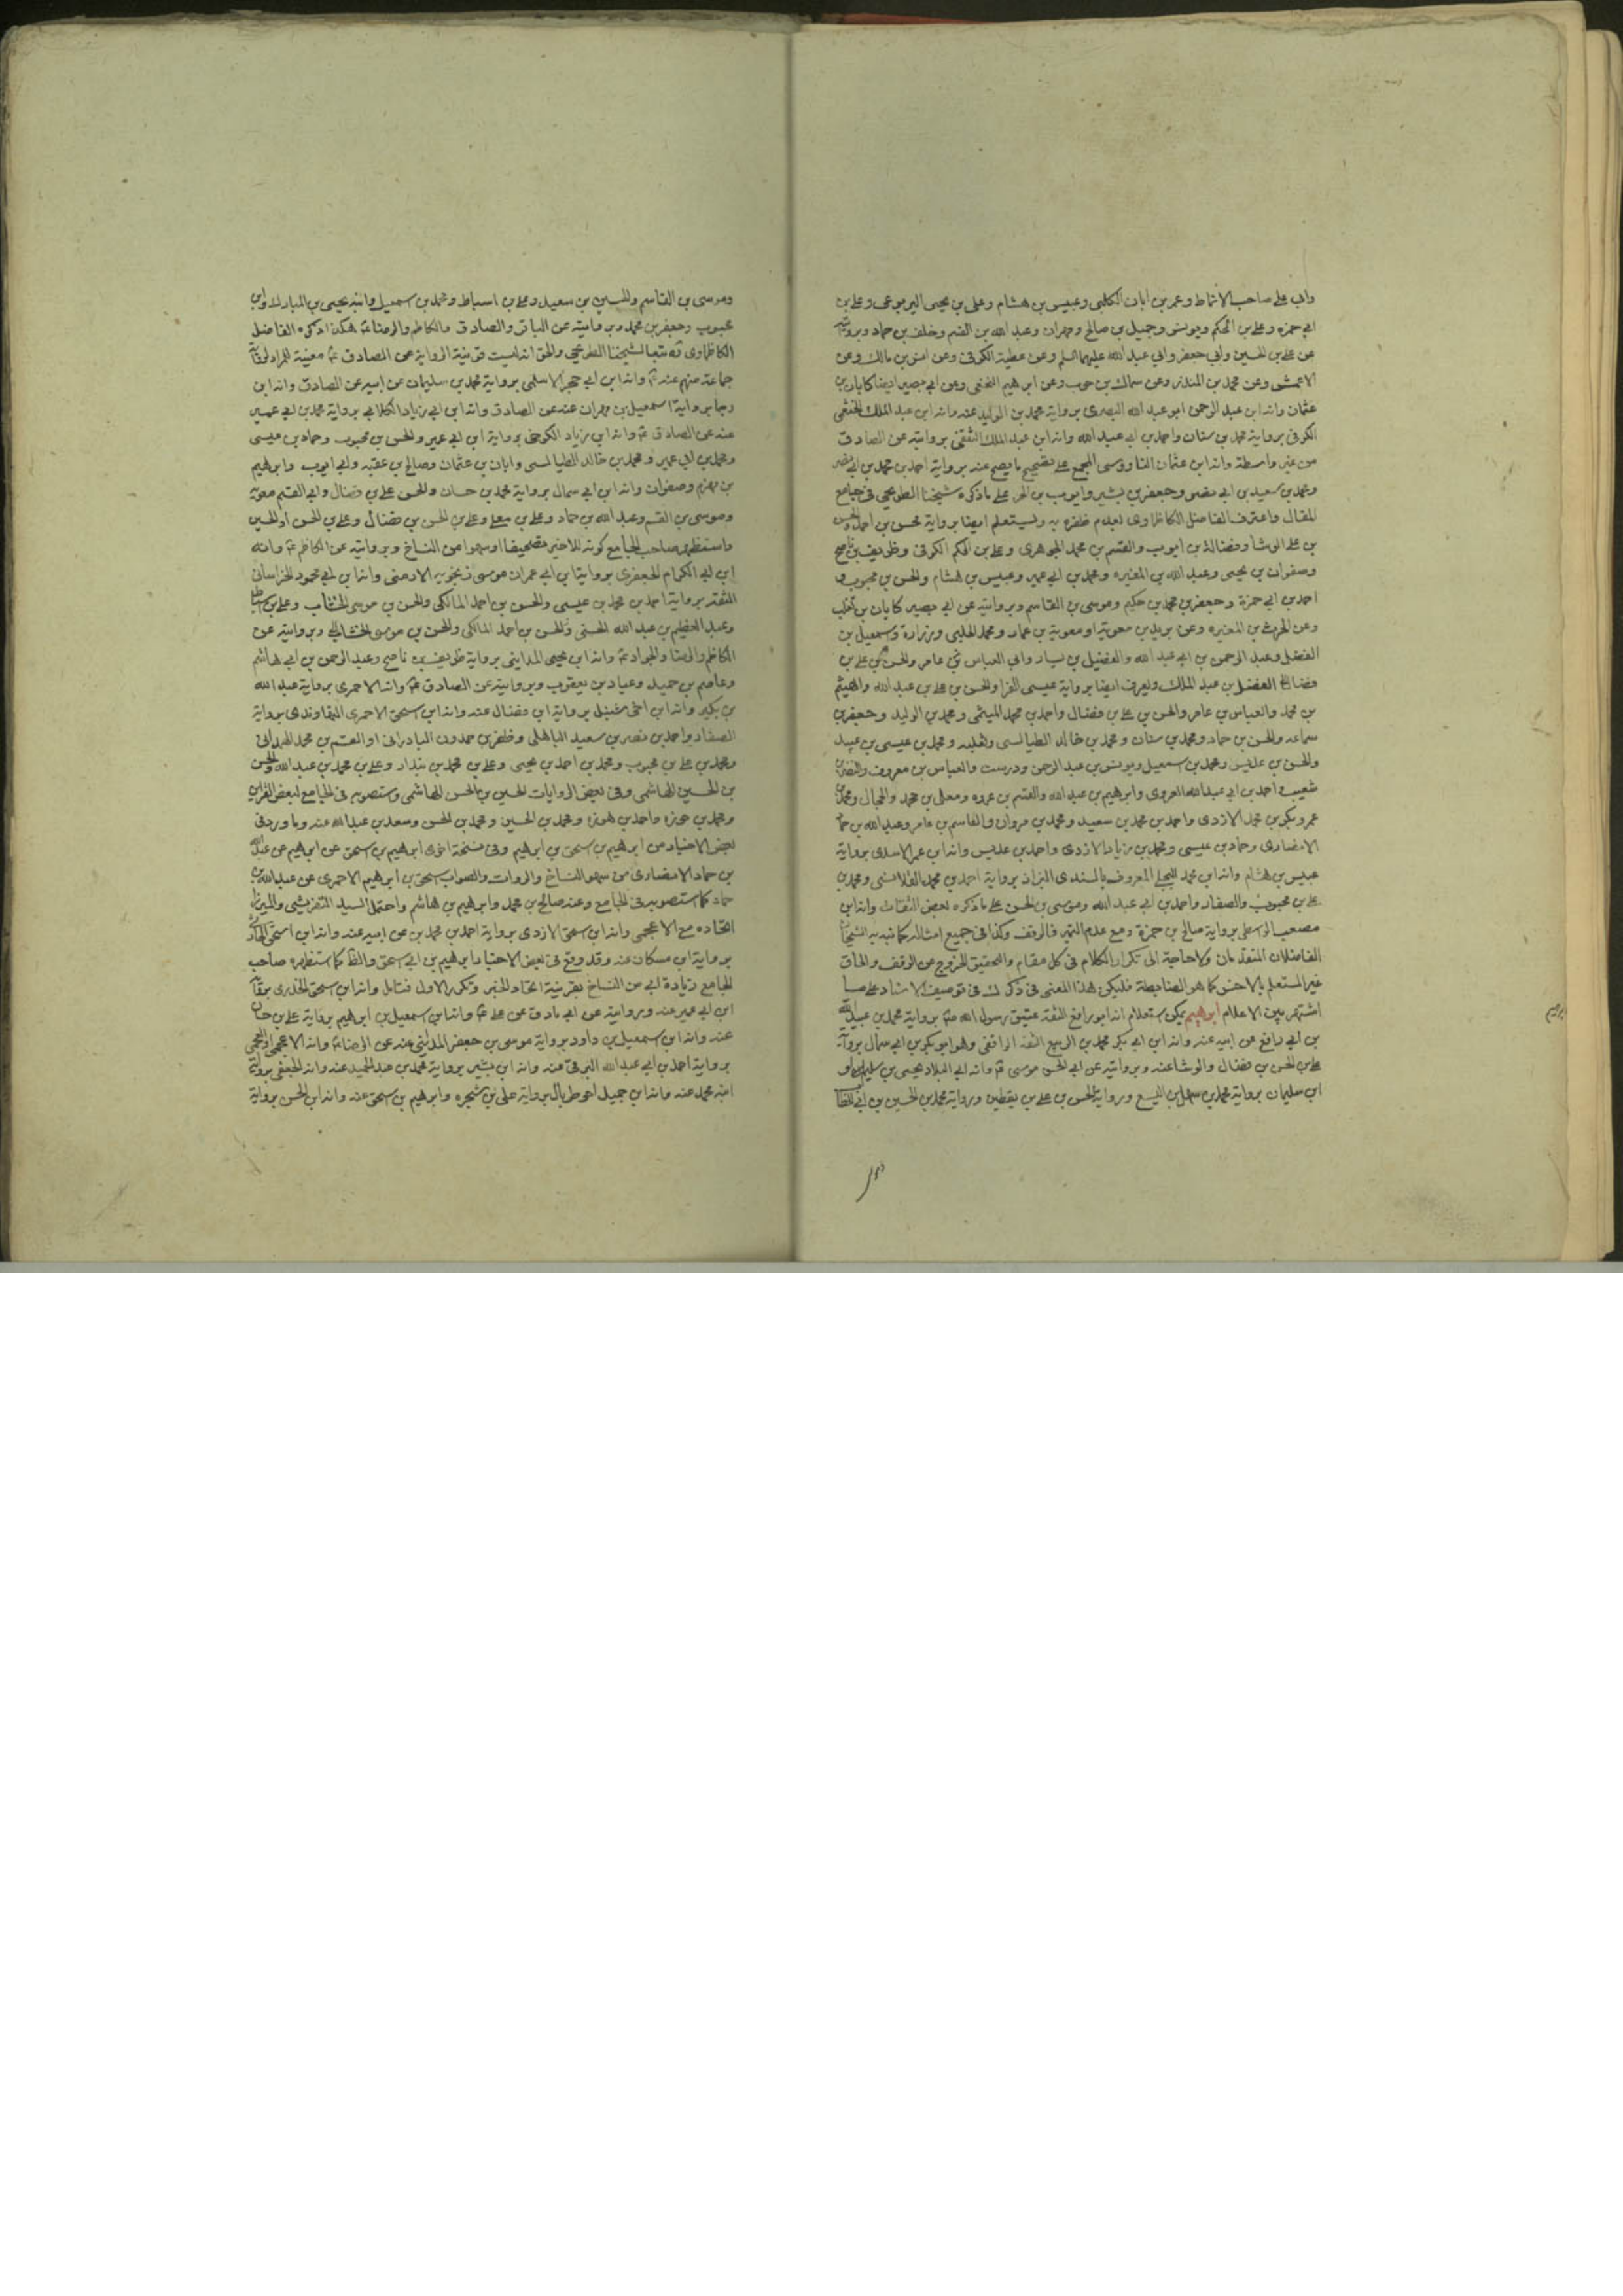 وابي علي صاحب الانماط وعمر بن ابان الكلبي وعبيس بن هشام وعلي بن يحيى اليربوعي وعلي بن
ابي حمزه وعلي بن الحكم ويونس وجميل بن صالح ومهران وعبد الله بن القسم وخلف بن حماد وبروايته
عن علي بن الحسين وابي جعفر وابي عبد الله عليهم السلم وعن عطية الكوفي وعن انس بن مالك وعن
الاعمش وعن محمد بن المنذر وعن سماك بن حرب وعن ابرهيم النخعي وعن ابي بصير ايضا كابان بن
عثمان وانه ابن عبد الرحمن ابو عبد الله البصري برواية محمد بن الوليد عنه وانه ابن عبد الملك الخثعمي
الكوفي برواية محمد بن سنان واحمد بن ابي عبد الله وانه ابن عبد الملك الثقفي بروايته عن الصادق
من غير واسطة وانه ابن عثمان الناووسي المجمع على تصحيح ما يصح عنه برواية احمد بن محمد بن ابي نصر
ومحمد بن سعيد بن ابي نصر وجعفر بن بشير وايوب بن الحر على ما ذكره شيخنا الطريحي في جامع
المقال واعترف الفاضل الكاظماوي لعدم ظفره به ويستعلم ايضا برواية محسن بن احمد والحسن
بن علي الوشا وفضالة بن ايوب والقسم بن محمد الجوهري وعلي بن الحكم الكوفي وظريف بن ناصح
وصفوان بن يحيى وعبد الله بن المغيره ومحمد بن ابي عمير وعبيس بن هشام والحسن بن محبوب و
احمد بن ابي حمزة وجعفر بن محمد بن حكيم وموسى بن القاسم وبروايته عن ابي بصير كابان بن تغلب
وعن الحرث بن المغيره وعن بريد بن معوية او معوية بن عمار ومحمد الحلبي وزرارة واسمعيل بن
الفضل وعبد الرحمن بن ابي عبد الله والفضيل بن يسار وابي العباس عامر والحسن بن علي بن
فضال الفضل بن عبد الملك ويعرف ايضا برواية عيسى الفرا والحسن بن علي بن عبد الله والهيثم
بن محمد والعباس بن عامر والحسن بن علي بن فضال واحمد بن محمد الميثمي ومحمد بن الوليد وجعفر بن
سماعه والحسن بن حماد ومحمد بن سنان ومحمد بن خالد الطيالسي وثعلبه ومحمد بن عيسى بن عبيد
والحسن بن عديس ومحمد بن اسمعيل ويونس بن عبد الرحمن ودرست والعباس بن معروف والنضر بن
شعيب واحمد بن ابي عبد الله العروي وابرهيم بن عبد الله والقسم بن عروه ومعلى بن محمد والحجال ومحمد بن
عمرو وبكر بن محمد الازدي واحمد بن محمد بن سعيد ومحمد بن مروان والقاسم بن عامر وعبد الله بن حماد
الانصاري وحماد بن عيسى ومحمد بن زياد الازدي واحمد بن عديس وانه ابن عمر الاسدي برواية
عبيس بن هشام وانه ابن محمد البجلي المعروف بالسندي البزاز برواية احمد بن محمد القلانسي ومحمد بن
علي بن محبوب والصفار واحمد بن ابي عبد الله وموسى بن الحسن على ما ذكره بعض الثقات وانه ابن
مصعب الواسطي برواية صالح بن حمزة ومع عدم التميز فالوقف وكذا في جميع امثاله كما نبه به الشيخان
الفاضلان المتقدمان ولا حاجة الى تكرار الكلام في كل مقام والتحقيق الخروج عن الوقف والحاق
غير المستعلم بالاحسن كما هو الضابطة فليكن هذا المعنى في ذكرك في توصيف الاسناد على ما
اشتهر بين الاعلام ابرهيم يمكن استعلام انه ابو رافع الثقة عتيق رسول الله ص برواية محمد بن عبيد الله
بن ابي رافع عن ابيه عنه وانه ابن ابي بكر محمد بن الربيع الثقة الواقفي وهو ابو بكر بن ابي سمال برواية
علي بن الحسن بن فضال والوشا عنه وبروايته عن ابي الحسن موسى ع وانه ابي البلاد يحيى بن سليم او
ابن سليمان برواية محمد بن سهل بن اليسع وبرواية الحسن بن علي بن يقطين وبرواية محمد بن الحسين بن ابي الخطاب
ابرهيم
وموسى بن القاسم والحسين بن سعيد وعلي بن اسباط ومحمد بن اسمعيل وابنه يحيى بن المبارك وابن
محبوب وجعفر بن محمد وبروايته عن الباقر والصادق والكاظم والرضا ع هكذا ذكره الفاضل
الكاظماوي ره تبعا لشيخنا الطريحي والحق انه ليست قرينية الرواية عن الصادق ع معينة للمراد لرواية
جماعة منهم عنه ع وانه ابن ابي حجر الاسلمي برواية محمد بن سليمان عن ابيه عن الصادق وانه ابن
رجا برواية اسمعيل بن مهران عنه عن الصادق وانه ابن ابي زياد الكلابي برواية محمد بن ابي عمير
عنه عن الصادق ع وانه ابن زياد الكرخي برواية ابن ابي عمير والحسن بن محبوب وحماد بن عيسى
ومحمد بن ابي عمير ومحمد بن خالد الطيالسي وابان بن عثمان وصالح بن عقبه وابي ايوب وابرهيم
بن مهزم وصفوان وانه ابن ابي سمال برواية محمد بن حسان والحسن علي بن فضال وابي القسم معويه
وموسى بن القسم وعبد الله بن حماد وعلي بن معلى وعلي بن الحسن بن فضال وعلي بن الحسن او الحسين
واستظهر صاحب الجامع كونه للاخير تصحيفا او سهوا من النساخ وبروايته عن الكاظم ع وانه
ابن ابي الكرام الجعفري بروايت ابن ابي عمران موسى زنجويه الارمني وانه ابن ابي محمود الخراساني
الثقة برواية احمد بن محمد بن عيسى والحسن بن احمد المالكي والحسن بن موسى الخشاب وعلي بن اسباط
وعبد العظيم بن عبد الله الحسني والحسن بن احمد المالكي والحسن بن موسى الخشاب وبروايته عن
الكاظم والرضا والجواد ع وانه ابن يحيى المدايني برواية ظريف بن ناصح وعبد الرحمن بن ابي هاشم
وعاصم بن حميد وعباد بن يعقوب وبروايته عن الصادق ع وانه الاحمري برواية عبد الله
بن بكير وانه ابن اخي شبل برواية ابن فضال عنه وانه ابن اسحق الاحمري النهاوندي برواية
الصفار واحمد بن نصر بن سعيد الباهلي وظفر بن حمدون البادراني او القسم بن محمد الهمداني
ومحمد بن علي بن محبوب ومحمد بن احمد بن يحيى وعلي بن محمد بن بندار وعلي بن محمد بن عبد الله والحسن
بن الحسين الهاشمي وفي بعض الروايات الحسين بن الحسن الهاشمي واستصوبه في الجامع لبعض القراين
ومحمد بن هوذه واحمد بن هوذه ومحمد بن الحسين ومحمد بن الحسن وسعد بن عبد الله عنه وما ورد في
بعض الاخبار من ابرهيم بن اسحق بن ابرهيم وفي نسخة اخرى ابرهيم بن اسحق عن ابرهيم عن عبد الله
بن حماد الانصاري من سهو النساخ والروات والصواب اسحق بن ابرهيم الاحمري عن عبد الله بن
حماد كما استصوبه في الجامع وعنه صالح بن محمد وابرهيم بن هاشم واحتمل السيد التفريشي والميرزا
اتحاده مع الاعجمي وانه ابن اسحق الازدي برواية احمد بن محمد بن عن ابيه عنه وانه ابن اسحق الحارثي
برواية ابن مسكان عنه وقد وقع في بعض الاخبار ابرهيم بن ابي اسحق والظ كما استظهره صاحب
الجامع زيادة ابي من النساخ بقرينة اتحاد الخبر وتكرر الاول فتامل وانه ابن اسحق الخدري برواية
ابن ابي عمير عنه وبروايته عن ابي صادق عن علي ع وانه ابن اسمعيل بن ابرهيم برواية علي بن حسان
عنه وانه ابن اسمعيل بن داود برواية موسى بن جعفر المدايني عنه عن الرضا ع وانه الاعجمي او العجمي
برواية احمد بن ابي عبد الله البرقي عنه وانه ابن بشير برواية محمد بن عبد الحميد عنه وانه الجعفي برواية
ابنه محمد عنه وانه ابن جميل اخو طربال برواية علي بن شجره وابرهيم بن اسحق عنه وانه ابن الحسن برواية